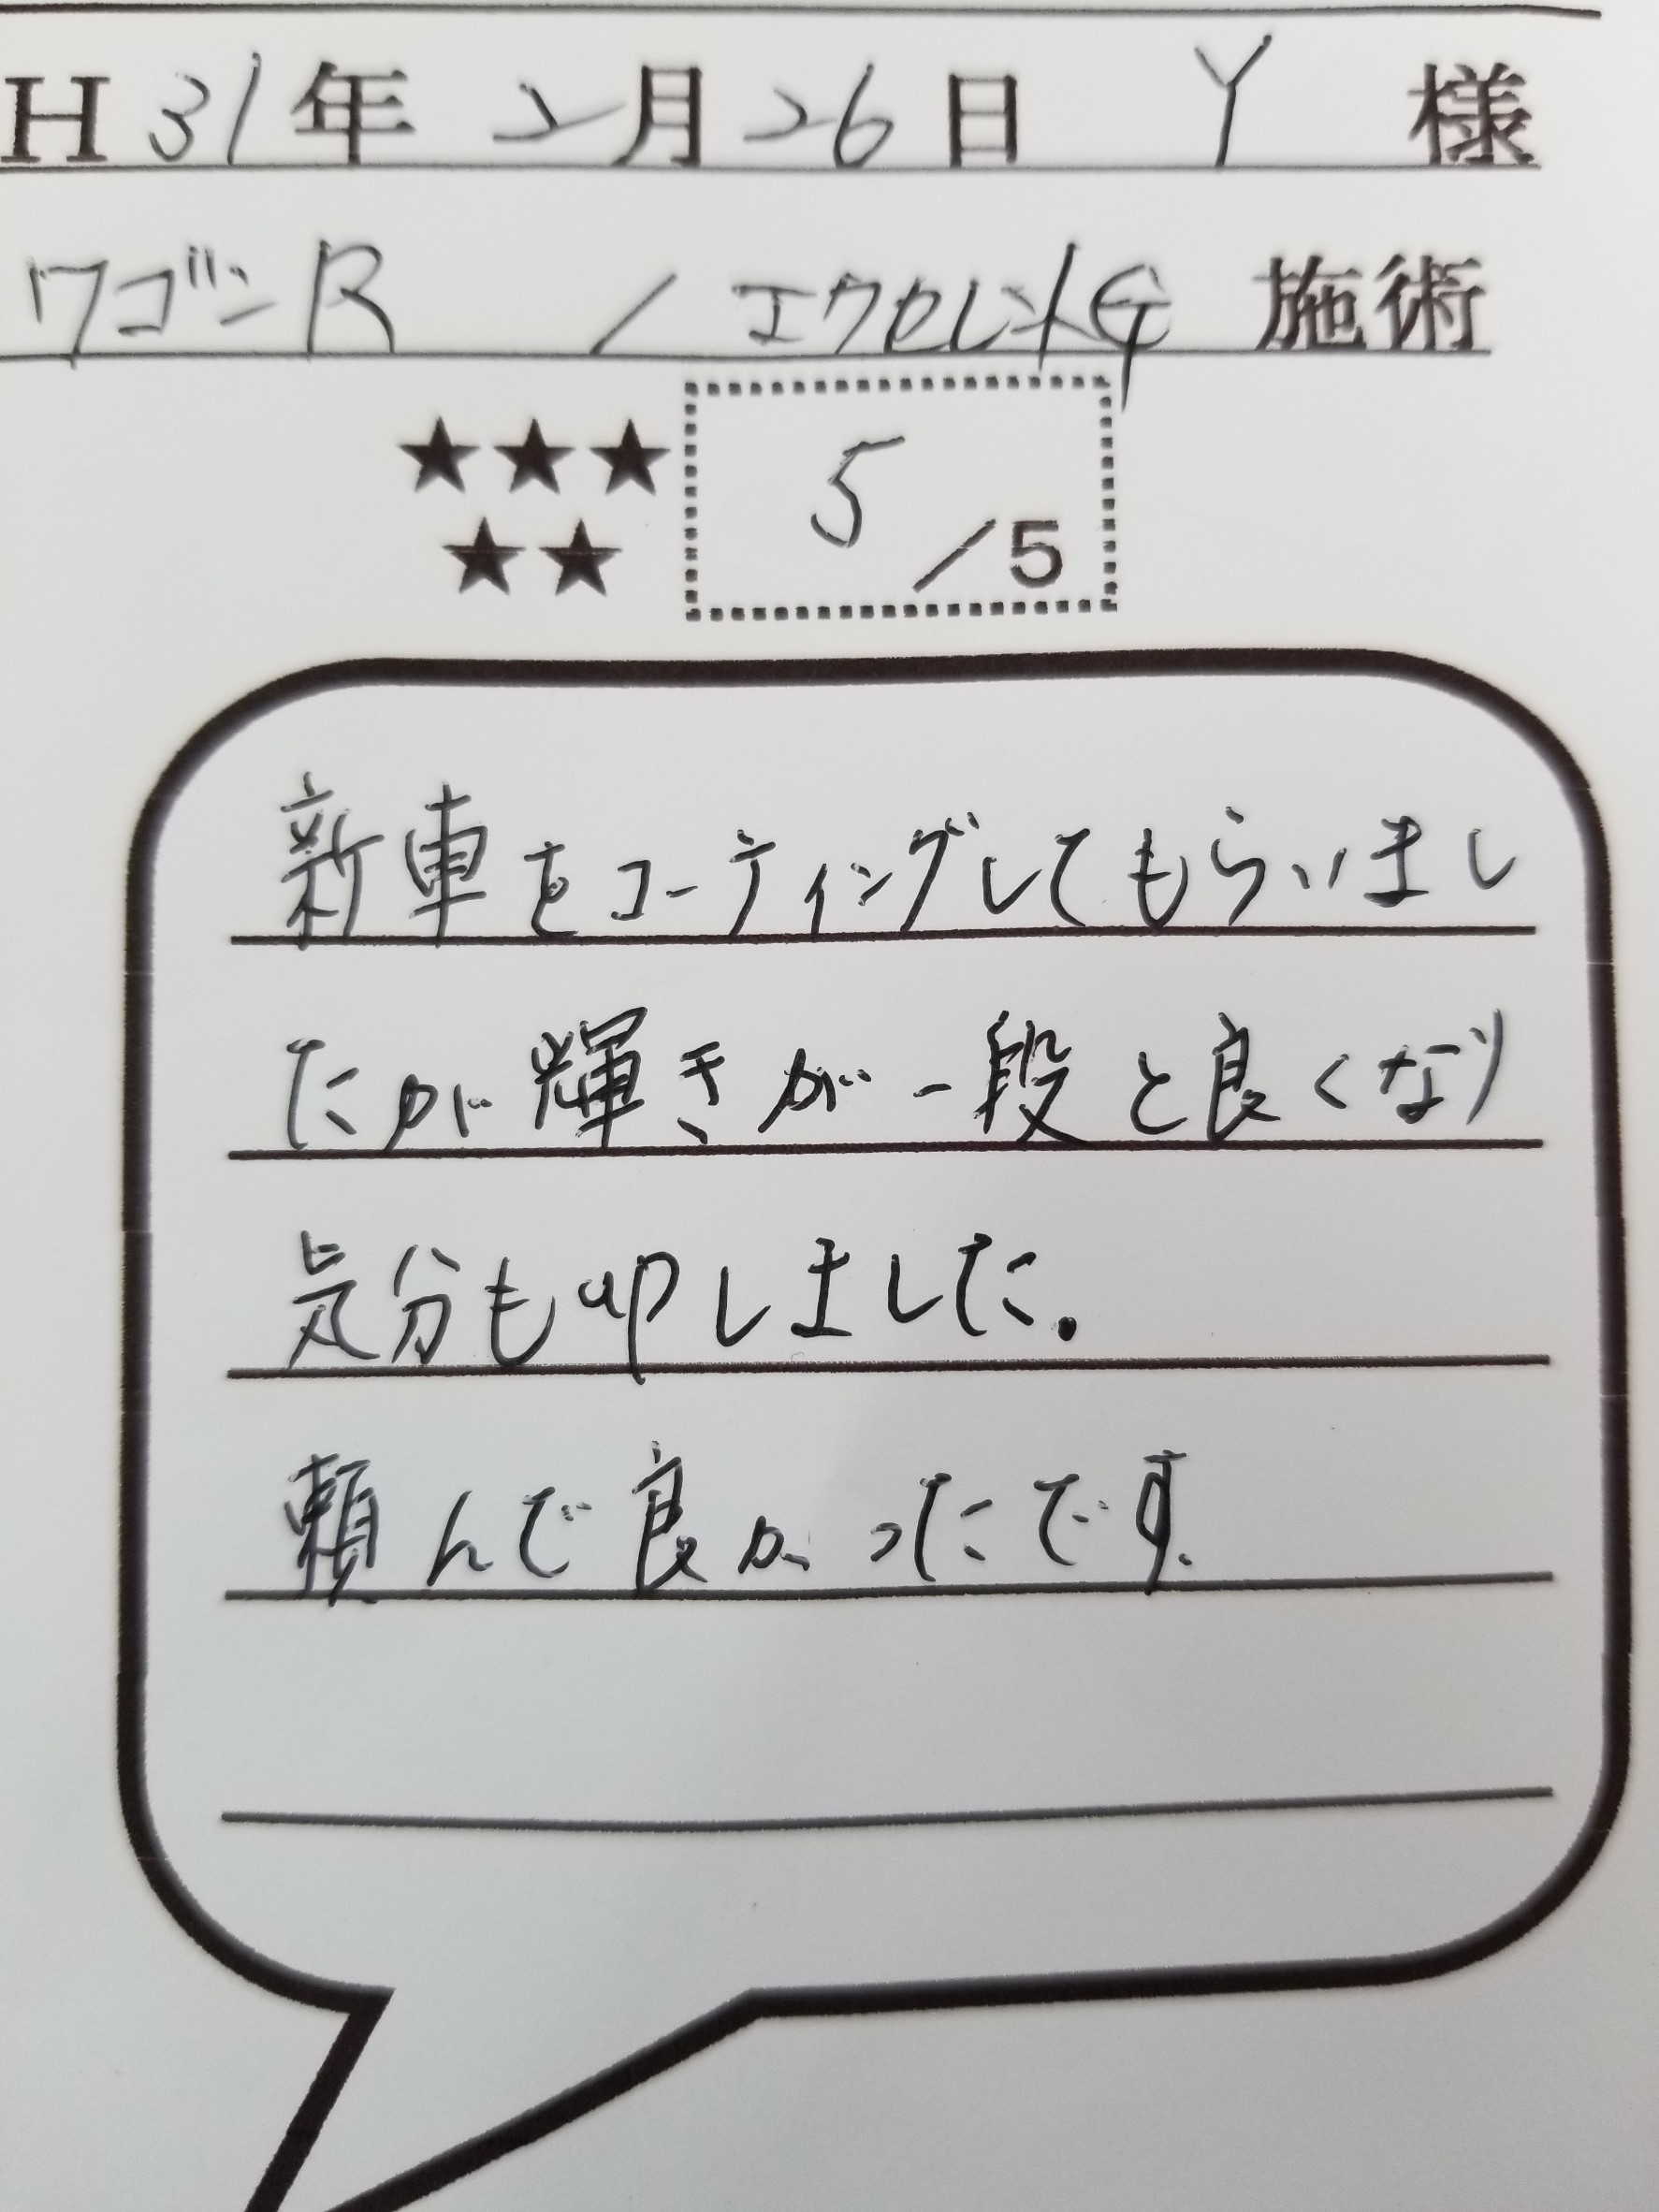 H31年 2月26日 Y 様
ワゴンR / エクセレントG 施術
★★★
★★
5/5
新車をコーティングしてもらいまし
たが輝きが一段と良くなり
気分も しました.
頼んで良かったです.